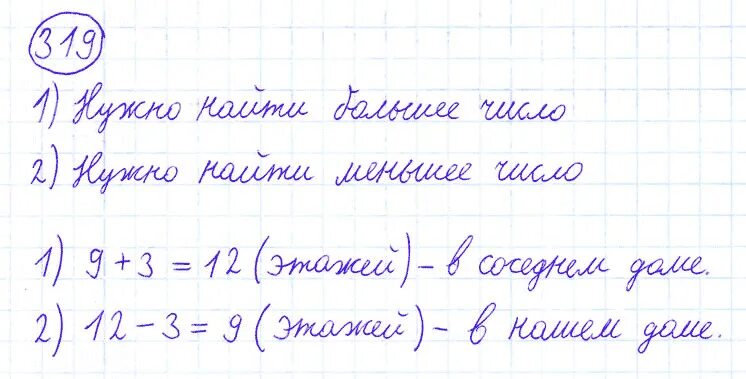 319
1) Нужно найти большее число
2) Нужно найти меньшее число
1) 9 + 3 = 12 (этажей) – в соседнем доме.
2) 12 – 3 = 9 (этажей) – в нашем доме.